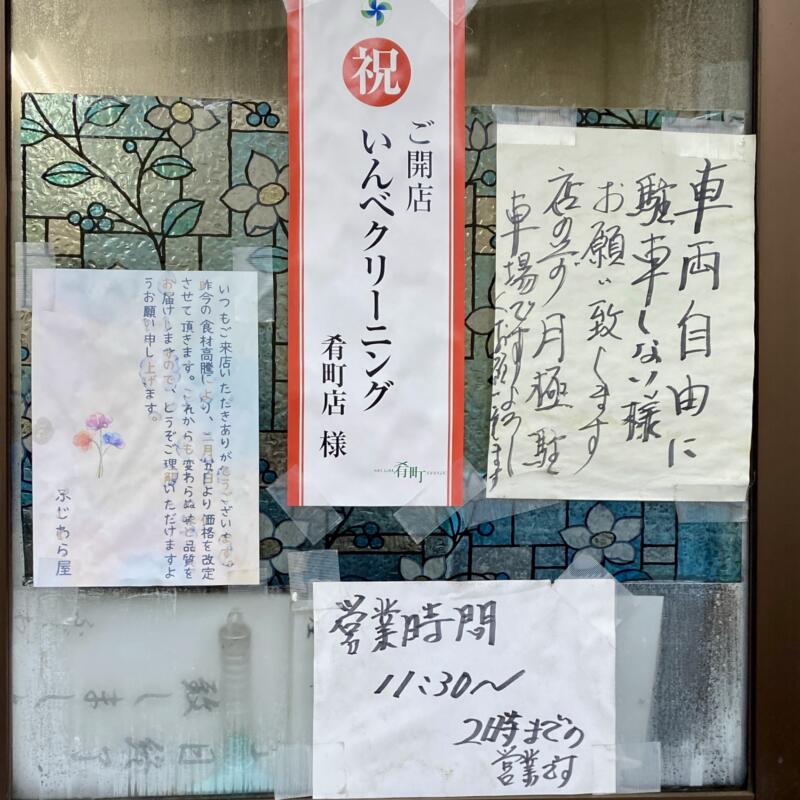 車両自由に
駐車しない様
お願い致します
店の前月極駐
車場ですよろし
くお願い致します
祝
ご開店
いんべクリーニング
肴町店 様
肴町
いつもご来店いただきありがとうございます。
昨今の食材高騰により、二月五日より価格を改定
させて頂きます。これからも変わらぬ味と品質を
お届けしますので、どうぞご理解いただけますよ
うお願い申し上げます。
ふじわら屋
営業時間
11:30〜
2時までの
営業です